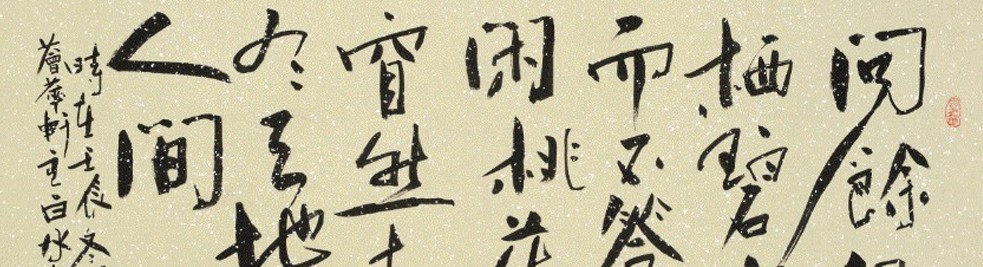 問餘
栖碧
而不答
閑桃花
窅然
天地
人間
時在壬辰冬
薈萃軒主白水